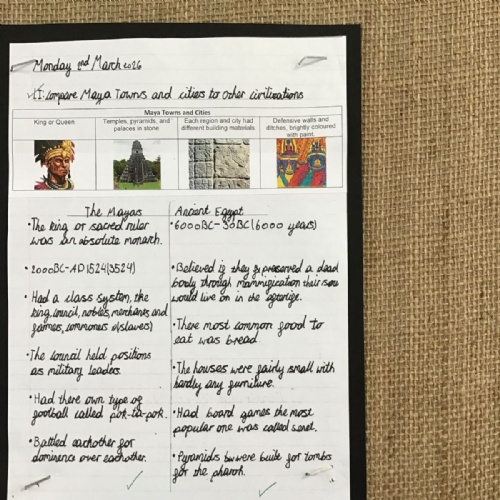 Monday 2nd March 2026
LI: Compare Maya Towns and cities to other civilizations
Maya Towns and Cities
King or Queen
Temples, pyramids, and
palaces in stone
Each region and city had
different building materials.
Defensive walls and
ditches, brightly coloured
with paint.
The Mayas
•The king or sacred ruler
was an absolute monarch.
•2000BC-AD1524(3524)
•Had a class system, the
king, council, nobles, merchants and
farmers, commoners (slaves)
•The council held positions
as military leaders.
•Had there own type of
football called pok-ta-pok.
•Battled eachother for
dominence over eachother.
Ancient Egypt
•6000BC-30BC(6000 years)
•Believed if they preserved a dead
body through mummification their
would live on in the afterlife.
•There most common food to
eat was bread.
•The houses were fairly small with
hardly any furniture.
•Had board games the most
popular one was called senet.
•Pyramids were built for tombs
for the pharoh.